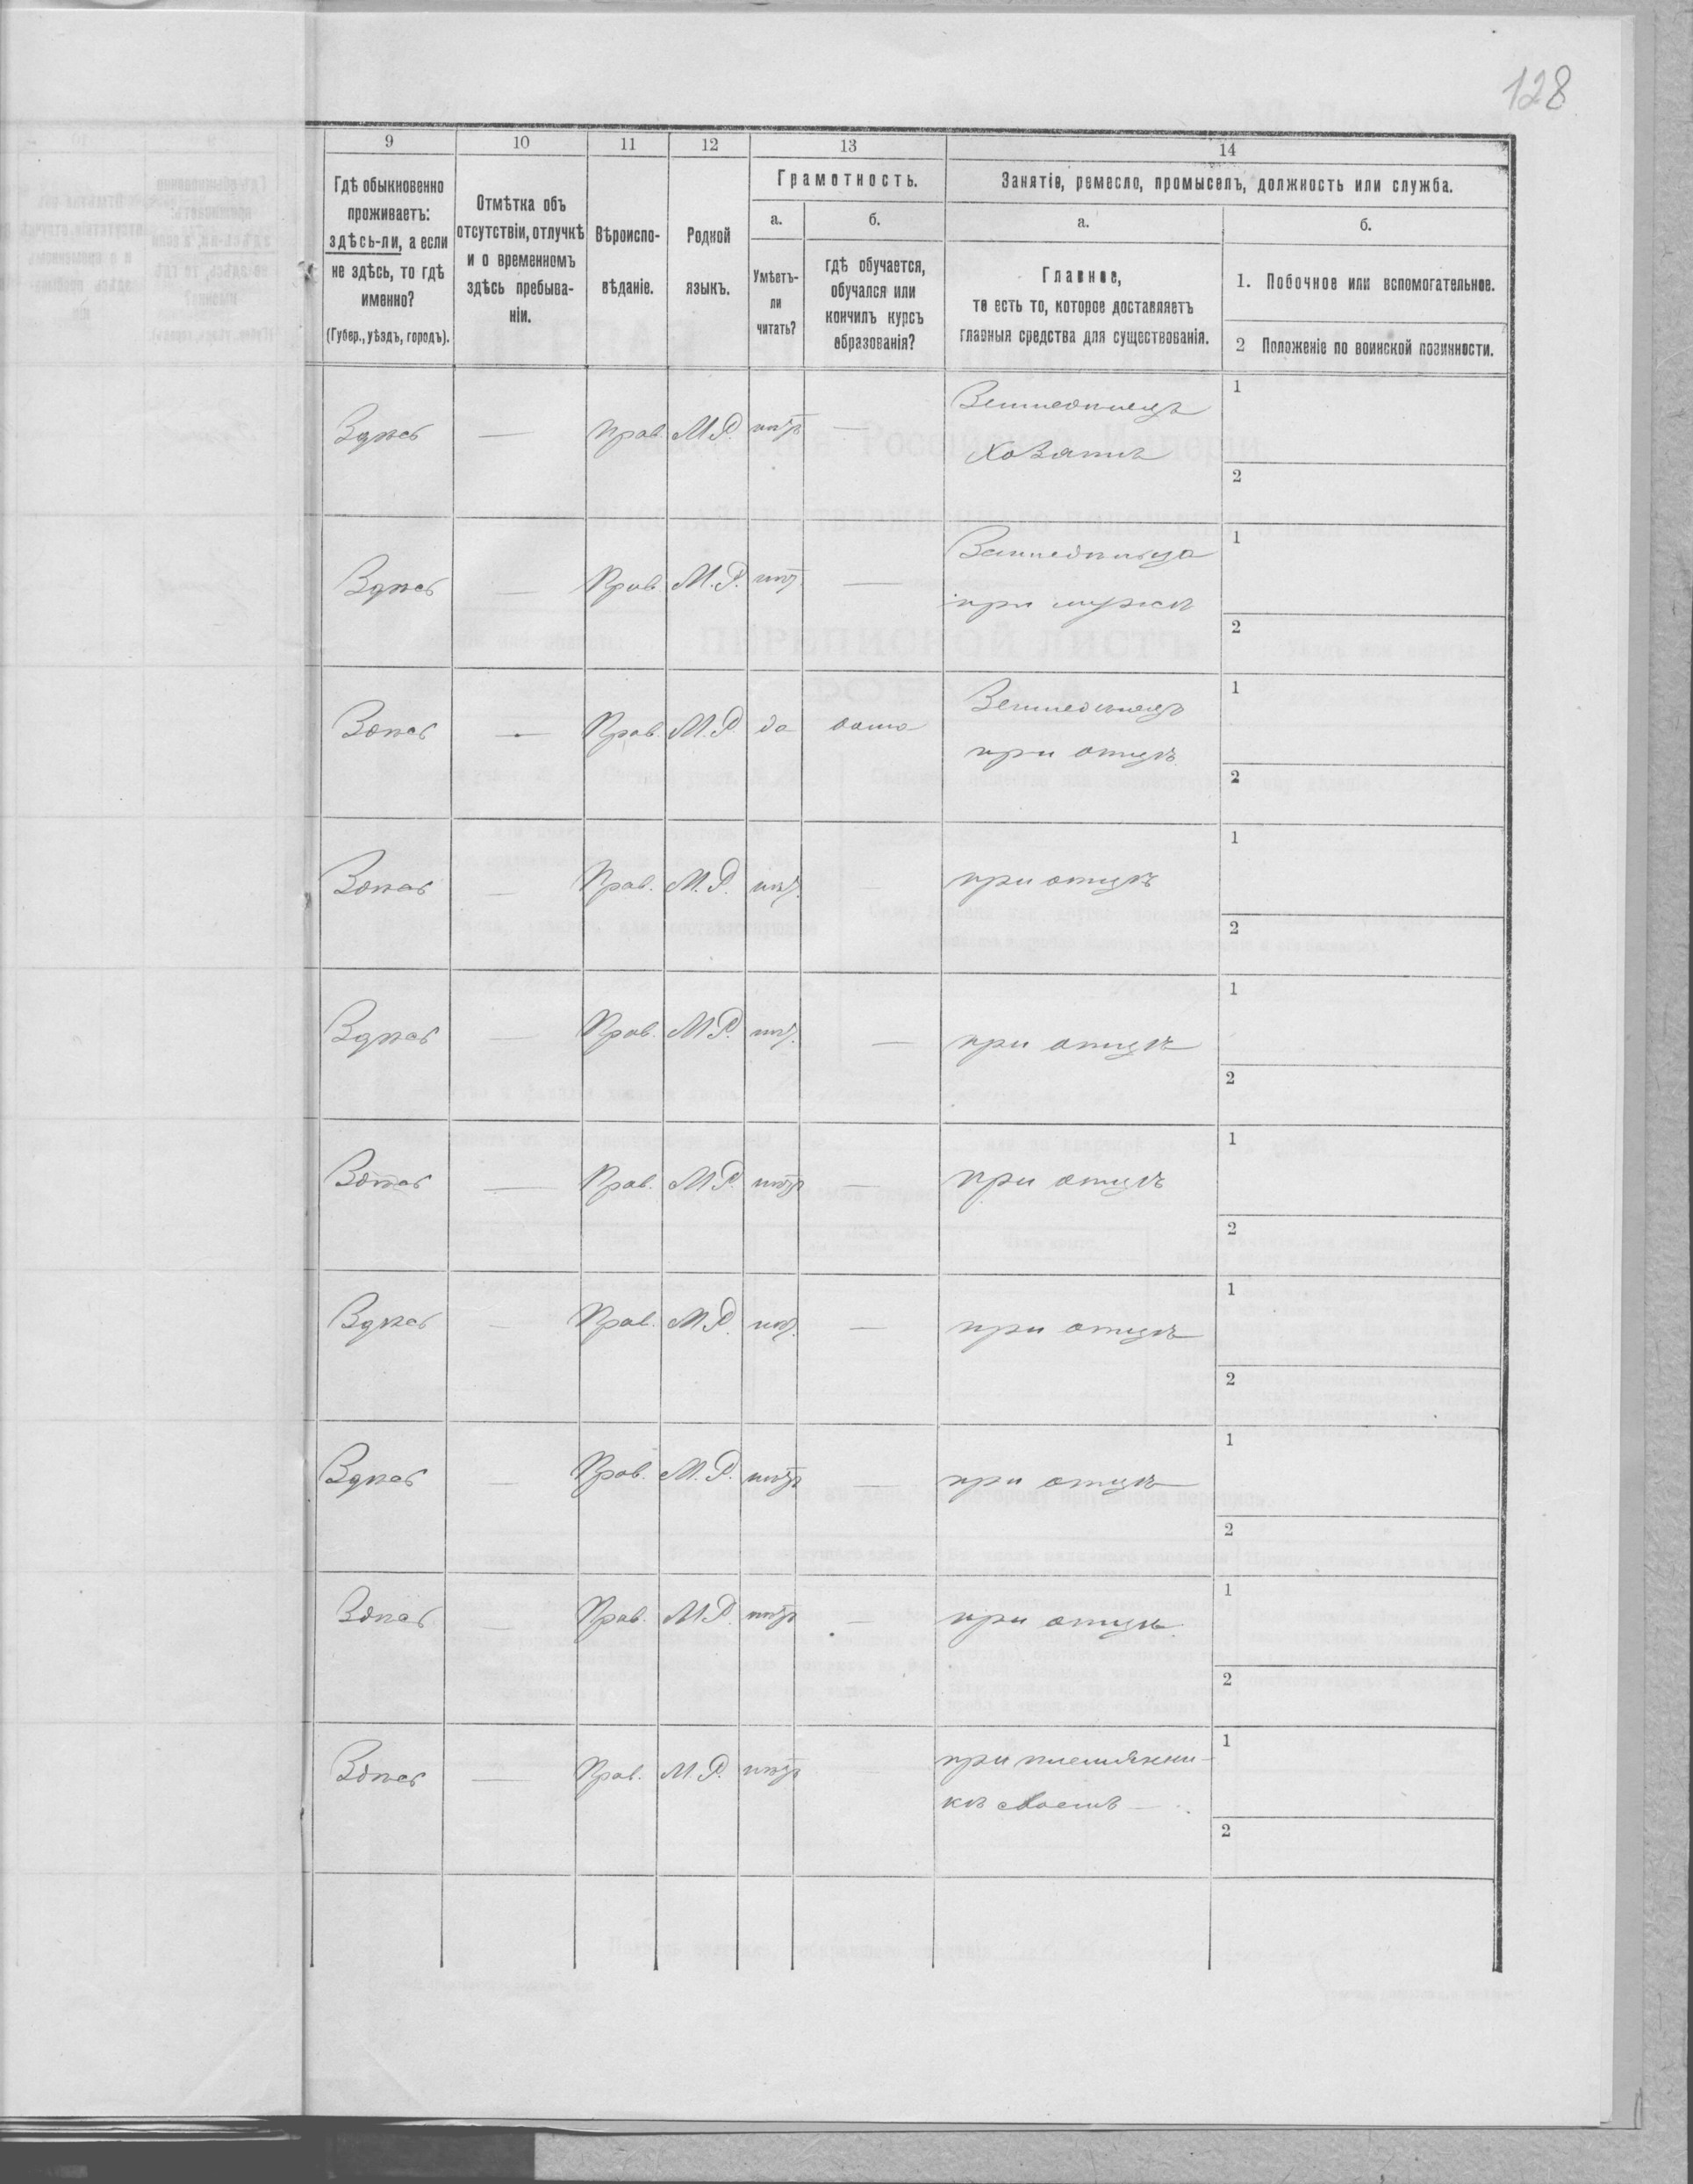 128
9 10 11 12 13 14
Гдѣ обыкновенно
проживаетъ:
здѣсь-ли, а если
не здѣсь, то гдѣ
именно?
(Губер., уѣздъ, городъ).
Отмѣтка объ
отсутствіи, отлучкѣ
и о временномъ
здѣсь пребыва-
ніи.
Вѣроиспо-
вѣданіе.
Родной
языкъ.
Грамотность.
а.
Умѣетъ-
ли
читать?
б.
гдѣ обучается,
обучался или
кончилъ курсъ
образованія?
Занятіе, ремесло, промыселъ, должность или служба.
а.
Главное,
то есть то, которое доставляетъ
главныя средства для существованія.
б.
1. Побочное или вспомогательное.
2 Положеніе по воинской повинности.
Здѣсь — Прав. М.Р. нѣтъ — Земледѣлецъ 1
Хозяинъ
2
Здѣсь — Прав. М.Р. нѣт. — 1
при мужѣ
2
Здѣсь — Прав. М.Р. да Земледѣлецъ 1
при отцѣ
2
Здѣсь — Прав. М.Р. нѣт. — при отцѣ 1
2
Здѣсь — Прав. М.Р. нѣт. — при отцѣ 1
2
Здѣсь — Прав. М.Р. нѣтъ — при отцѣ 1
2
Здѣсь — Прав. М.Р. нѣт. — при отцѣ 1
2
Здѣсь — Прав. М.Р. нѣтъ — при отцѣ 1
2
Здѣсь — Прав. М.Р. нѣтъ — при отцѣ 1
2
Здѣсь — Прав. М.Р. нѣтъ — при племянни- 1
кѣ своемъ —
2